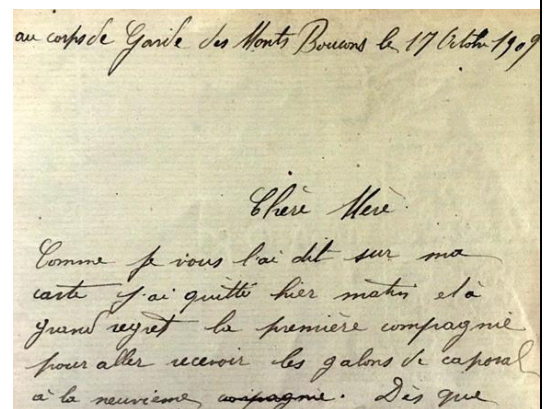 au corps de Garde des Monts Boucons le 17 Octobre 1909
Chère Mère
Comme je vous l'ai dit sur ma
carte j'ai quitté hier matin et à
grand regret la première compagnie
pour aller recevoir les galons de caporal
à la neuvième compagnie. Dès que